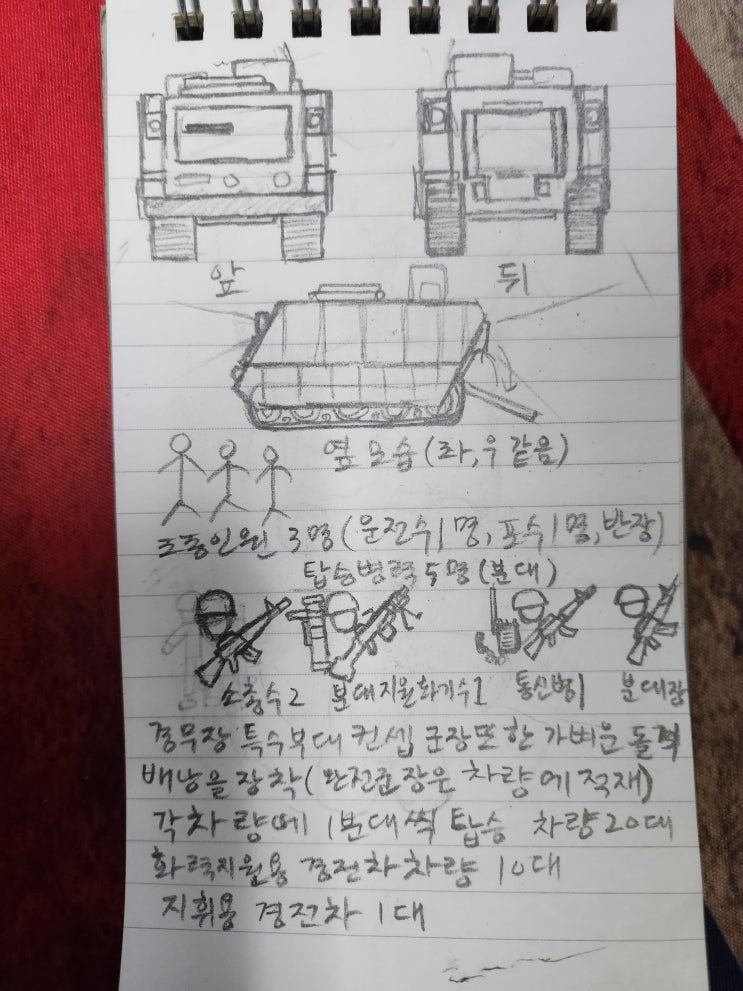 앞
뒤
옆모습(좌,우같음)
조종인원 3명(운전수1명, 포수1명, 반장)
탑승병력 5명(분대)
소총수2 분대지원화기수1 통신병1 분대장
경무장 특수부대 컨셉 군장또한 가벼운 돌격
배낭을 장착(완전군장은 차량에 적재)
각차량에 1분대씩 탑승 차량20대
화력지원용 경전차차량 10대
지휘용 경전차 1대